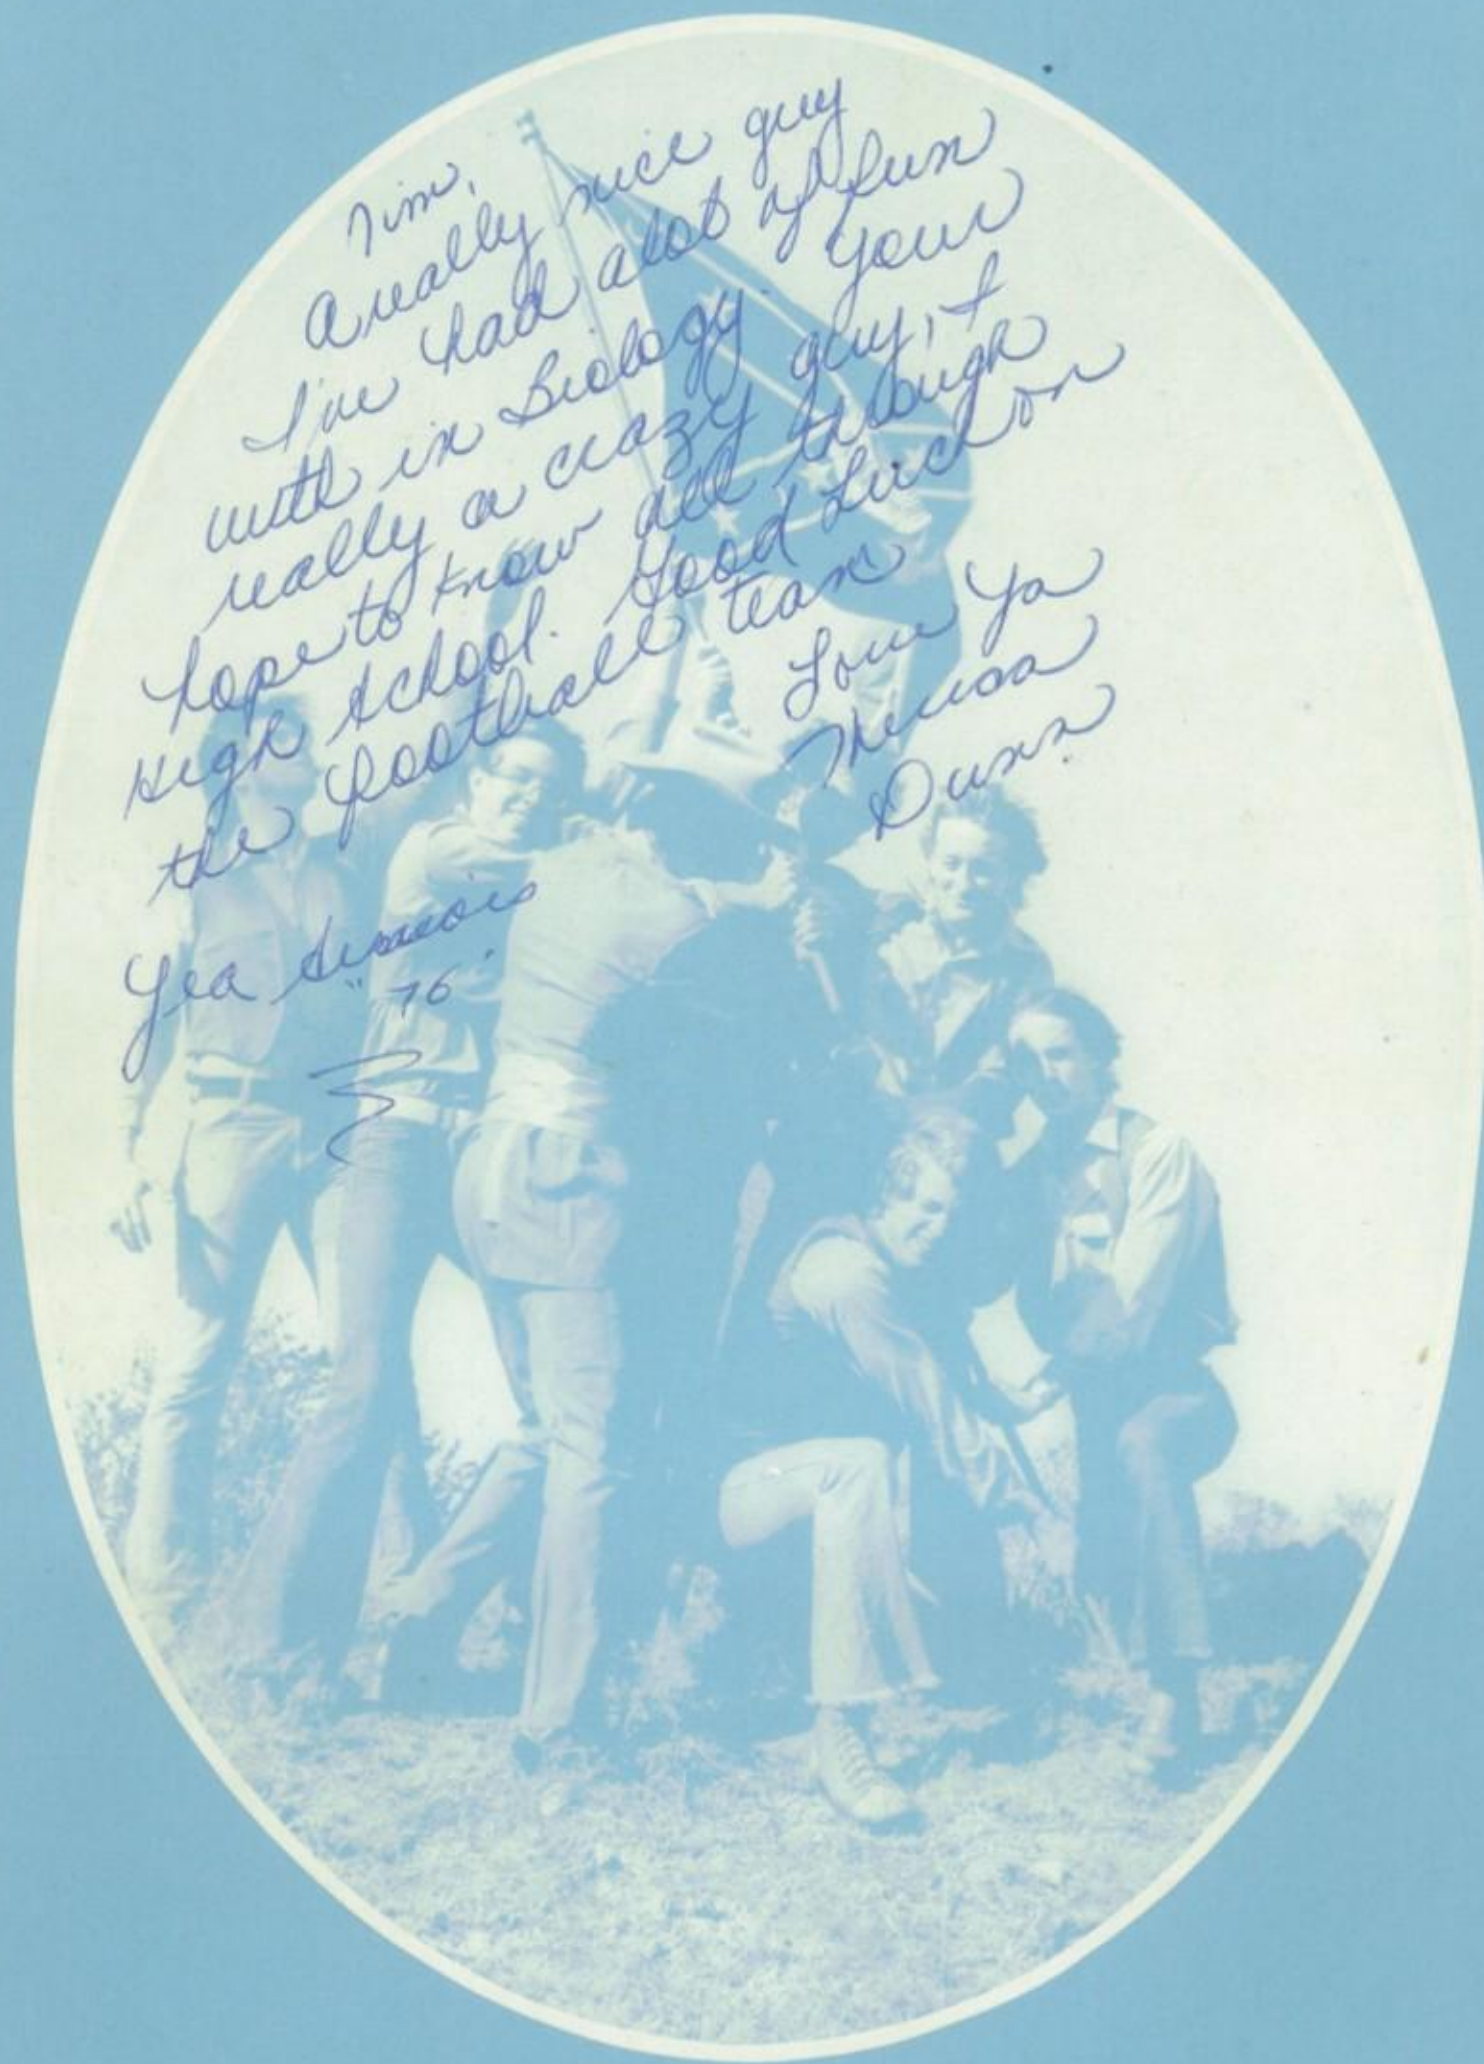 Jim,
a really nice guy
I've had alot of fun
with in Biology. Your
really a crazy guy, I
hope to know all through
High School. Good Luck on
the football team
Love Ya
Dunn
Yea Seniors
"76"